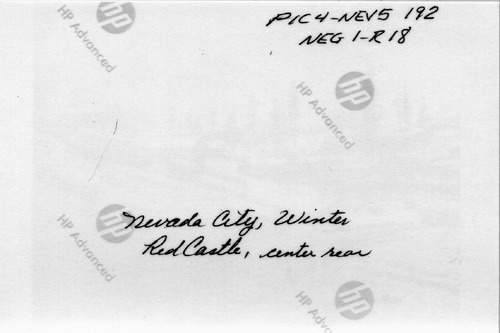 PIC4-NEV5 192
NEG 1-R18
hp
HP Advanced
hp
HP Advanced
Nevada City, Winter
Red Castle, center rear
hp
HP Advanced
hp
HP Advanced